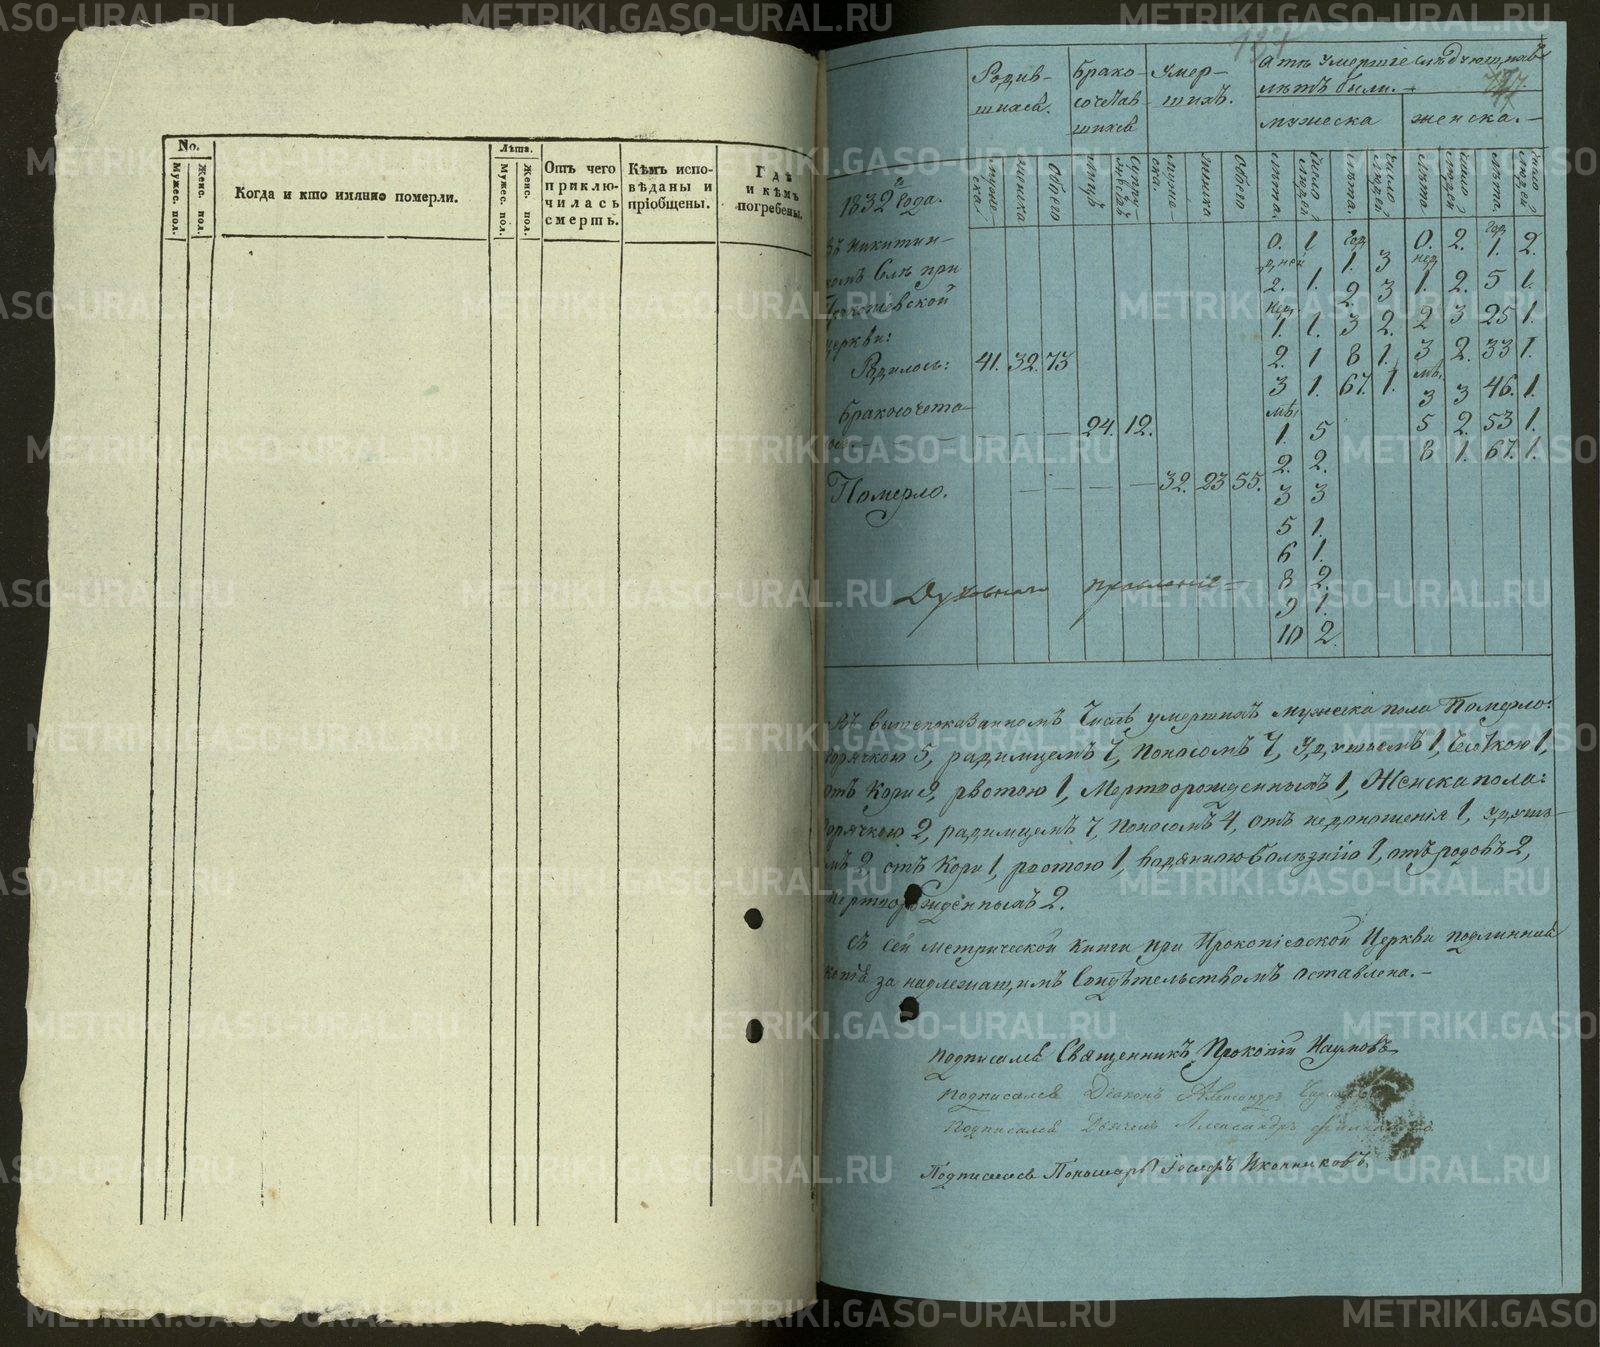 No.
Мужес. пол.
Женс. пол.
Когда и кто имянно померли.
Лѣта.
Мужес. пол.
Женс. пол.
Отъ чего приключилась смерть.
Кѣмъ исповѣданы и пріобщены.
Гдѣ и кѣмъ погребены.
1832го Года.
Родившихся.
Бракосочетавшихся
Умершихъ.
А тѣ умершіе слѣдующихъ
лѣтъ были.
мужеска
женска.
Обоего
женска
Обоего
лѣта.
число людей
лѣта.
число людей
лѣта
лѣта.
Въ Никитинскомъ Селѣ при
Прокопьевской
церкви:
Родилось: 41. 32. 73
Бракосочета-
лось. 24. 12.
Померло. 32. 23 55.
0. 1 год 0. 2. год 2.
дней 1. 3 нед 1.
2. 1. 2. 3 1. 2. 5 1.
нед. 1. 1. 3 2. 2 3 25 1.
2. 1 8 1. 3 2. 33 1.
3 1. 67. 1. мѣ. 3 3 46. 1.
мѣ. 1. 5 5 2. 53 1.
2. 2. 8 1. 67. 1.
3 3
5 1.
6 1.
8 2.
9 1.
10 2.
Духовнаго правленіе
Въ вышепоказанномъ Числѣ умершихъ мужеска пола Померло:
горячкою 5, радимцемъ 7, поносомъ 7, Удушьемъ 1, 1,
отъ Кори 9, рвотою 1, Мертворожденныхъ 1, Женска пола:
горячкою 2, радимцемъ 7, поносомъ 4, отъ недоношенія 1, удушь-
мъ 2, отъ Кори 1, рвотою 1, водянною болѣзнію 1, отъ родовъ 2,
Мертворожденныхъ 2.
Съ сей метрической книги при Прокопіевской Церкви подлинная
копія за надлежащимъ Свидѣтельствомъ оставлена.
Подписалсѧ Священникъ Прокопій Наумовъ
Подписался Діаконъ Александръ
Подписался Дьячекъ Александръ
Подписался Пономарь Іосифъ Иконниковъ.
METRIKI.GASO-URAL.RU